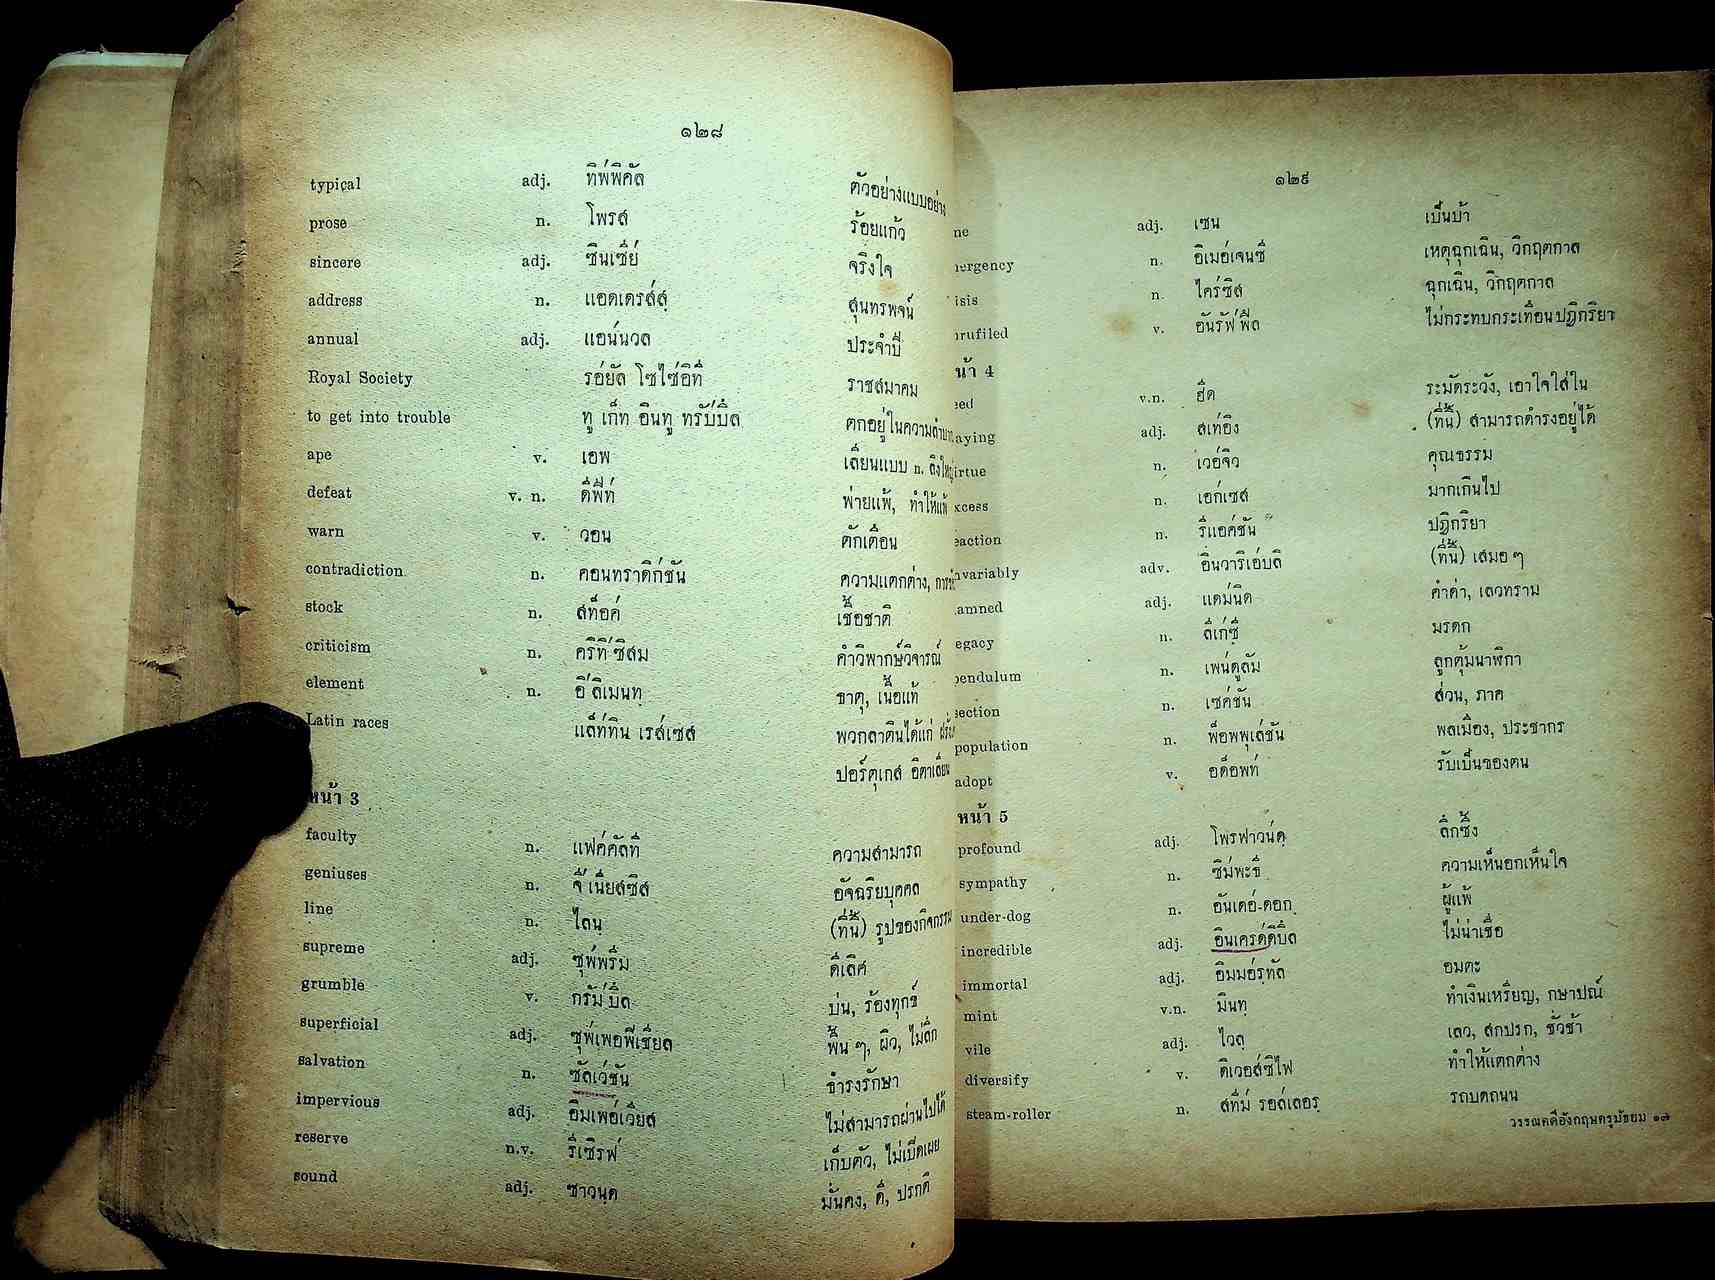 ๑๒๘
typical adj. ทิพ่พิคัล ตัวอย่างแบบอย่าง
prose n. โพรส ร้อยแก้ว
sincere adj. ซินเซี่ย่ จริงใจ
address n. แอดเดรส์สฺ สุนทรพจน์
annual adj. แอน่นวล ประจำปี
Royal Society รอ่ยัล โซไซ่อิที่ ราชสมาคม
to get into trouble ทู เก็ท อินทู ทรับ่บิ้ล ตกอยู่ในความลำบาก
ape v. เอพ เลียนแบบ n. ลิงใหญ่
defeat v. n. ดีฟี่ท่ พ่ายแพ้, ทำให้แพ้
warn v. วอน ตักเตือน
contradiction n. คอนทราดิก่ชัน ความแตกต่าง,
stock n. สท็อค่ เชื้อชาติ
criticism n. คริทิ่ซิสม คำวิพากษ์วิจารณ์
element n. อี่ลิเมนทฺ ธาตุ, เนื้อแท้
Latin races แล็ท่ทิน เรส่เซส พวกลาตินได้แก่
ปอร์ตุเกส อิตาเลียน
หน้า 3
faculty n. แฟค่คัลที ความสามารถ
geniuses n. จี่เนี่ยสซิส อัจฉริยบุคคล
line n. ไลนฺ (ที่นี้) รูปของกิจกรรม
supreme adj. ซุพ่พรีม ดีเลิศ
grumble v. กรัม่บิ้ล บ่น, ร้องทุกข์
superficial adj. ซุพ่เพอพีเชี่ยล พื้น ๆ, ผิว, ไม่ลึก
salvation n. ซัลเว่ชัน ธำรงรักษา
impervious adj. อิมเพอ่เวียส ไม่สามารถผ่านไปได้
reserve n.v. รีเซิรฟ่ เก็บตัว, ไม่เปิดเผย
sound adj. ซาวนฺด มั่นคง, ดี, ปรกติ
๑๒๙
ne adj. เซน เป็นบ้า
ergency n. อิเมอ่เจนซี่ เหตุฉุกเฉิน, วิกฤตกาล
isis n. ไคร่ซิส ฉุกเฉิน, วิกฤตกาล
rufiled v. อันรัฟ่ฟึล ไม่กระทบกระเทือนปฏิกริยา
น้า 4
eed v.n. ฮีด ระมัดระวัง, เอาใจใส่ใน
aying adj. สเท่อิง (ที่นี้) สามารถดำรงอยู่ได้
irtue n. เวอ่จิว คุณธรรม
xcess n. เอก่เซส มากเกินไป
eaction n. รีแอค่ชัน ปฏิกริยา
nvariably adv. อินวาริเอ่บลิ (ที่นี้) เสมอ ๆ
amned adj. แดม่นิด คำด่า, เลวทราม
egacy n. ลีเก่ซี่ มรดก
pendulum n. เพน่ดูลัม ลูกตุ้มนาฬิกา
section n. เซค่ชัน ส่วน, ภาค
population n. พ็อพพุเล่ชัน พลเมือง, ประชากร
adopt v. อด็อพท่ รับเป็นของตน
หน้า 5
profound adj. โพรฟาวน่ดฺ ลึกซึ้ง
sympathy n. ซิม่พะธี่ ความเห็นอกเห็นใจ
under-dog n. อันเดอ่-ดอกฺ ผู้แพ้
incredible adj. อินเครด่ดิบึล ไม่น่าเชื่อ
immortal adj. อิมมอ่รฺทัล อมตะ
mint v.n. มินทฺ ทำเงินเหรียญ, กษาปณ์
vile adj. ไวลฺ เลว, สกปรก, ชั่วช้า
diversify v. ดิเวอส่ซิไฟ ทำให้แตกต่าง
steam-roller n. สทีม่ รอล่เลอรฺ รถบดถนน
วรรณคดีอังกฤษครูมัธยม ๑๗